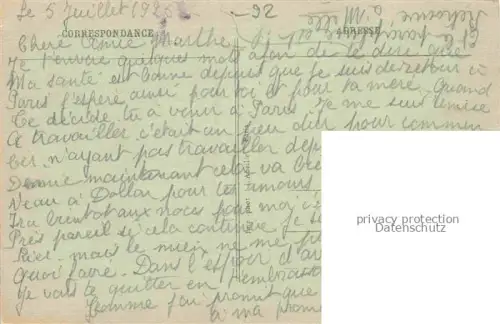 Le 5 Juillet 1925
-92
CORRESPONDANCE
ADRESSE
Chere Amie Marthe
Je t'envoie quelques mots afin de te dire que
Ma santé est bonne depuis que je suis de retour à
Paris j'espere aussi pour toi et pour ta mere. Quand
te décide tu à venir a Paris Je me suis remise
A travailler c'était un peu dur pour commen
cer n'ayant pas travailler dep
maintenant cela va bie
à pour tes amours
bientot aux noces pour moi
Près pareil si cela continue Je
mais le mieux ne me
Quoi faire. Dans l'espoir d'av
Je vais te quitter en t'embrassa
Comme j'ai promit que
à ma prome
privacy protection
Datenschutz